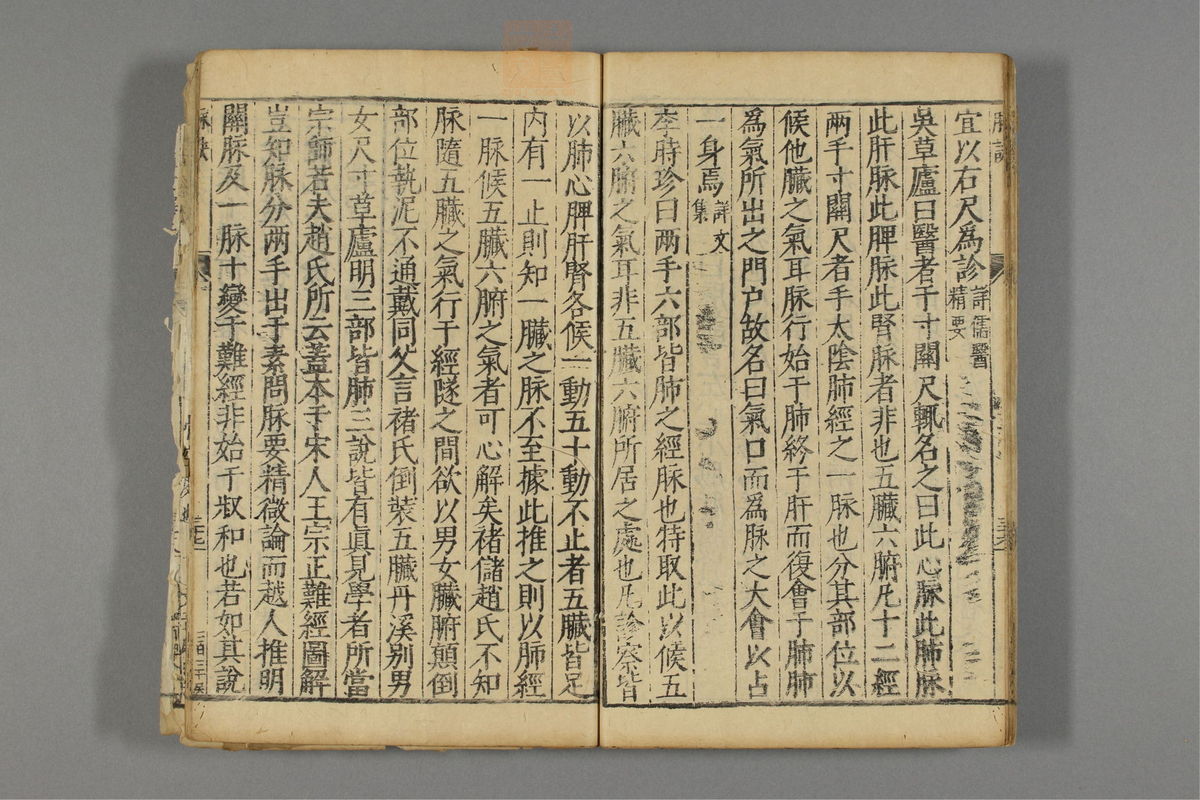 宜以右尺為診詳儒醫精要
吳草廬曰醫者于寸關尺輒名之曰此心脉此肺脉
此肝脉此脾脉此腎脉者非也五臟六腑凡十二經
兩手寸關尺者手太陰肺經之一脉也分其部位以
候他臟之氣耳脉行始于肺終于肝而復會于肺肺
為氣所出之門户故名曰氣口而為脉之大會以占
一身焉詳文集
李時珍曰兩手六部皆肺之經脉也特取此以候五
臟六腑之氣耳非五臟六腑所居之處也凡診察皆
以肺心脾肝腎各候一動五十動不止者五臟皆足
内有一止則知一臟之脉不至據此推之則以肺經
一脉候五臟六腑之氣者可心解矣褚儲趙氏不知
脉隨五臟之氣行于經隧之間欲以男女臟腑顛倒
部位執泥不通戴同父言褚氏倒裝五臟丹溪别男
女尺寸草廬明三部皆肺三說皆有真見學者所當
宗師若夫趙氏所云蓋本于宋人王宗正難經圖解
豈知脉分兩手出于素問脉要精微論而越人推明
關脉及一脉十變于難經非始于叔和也若如其說
三百三十矣